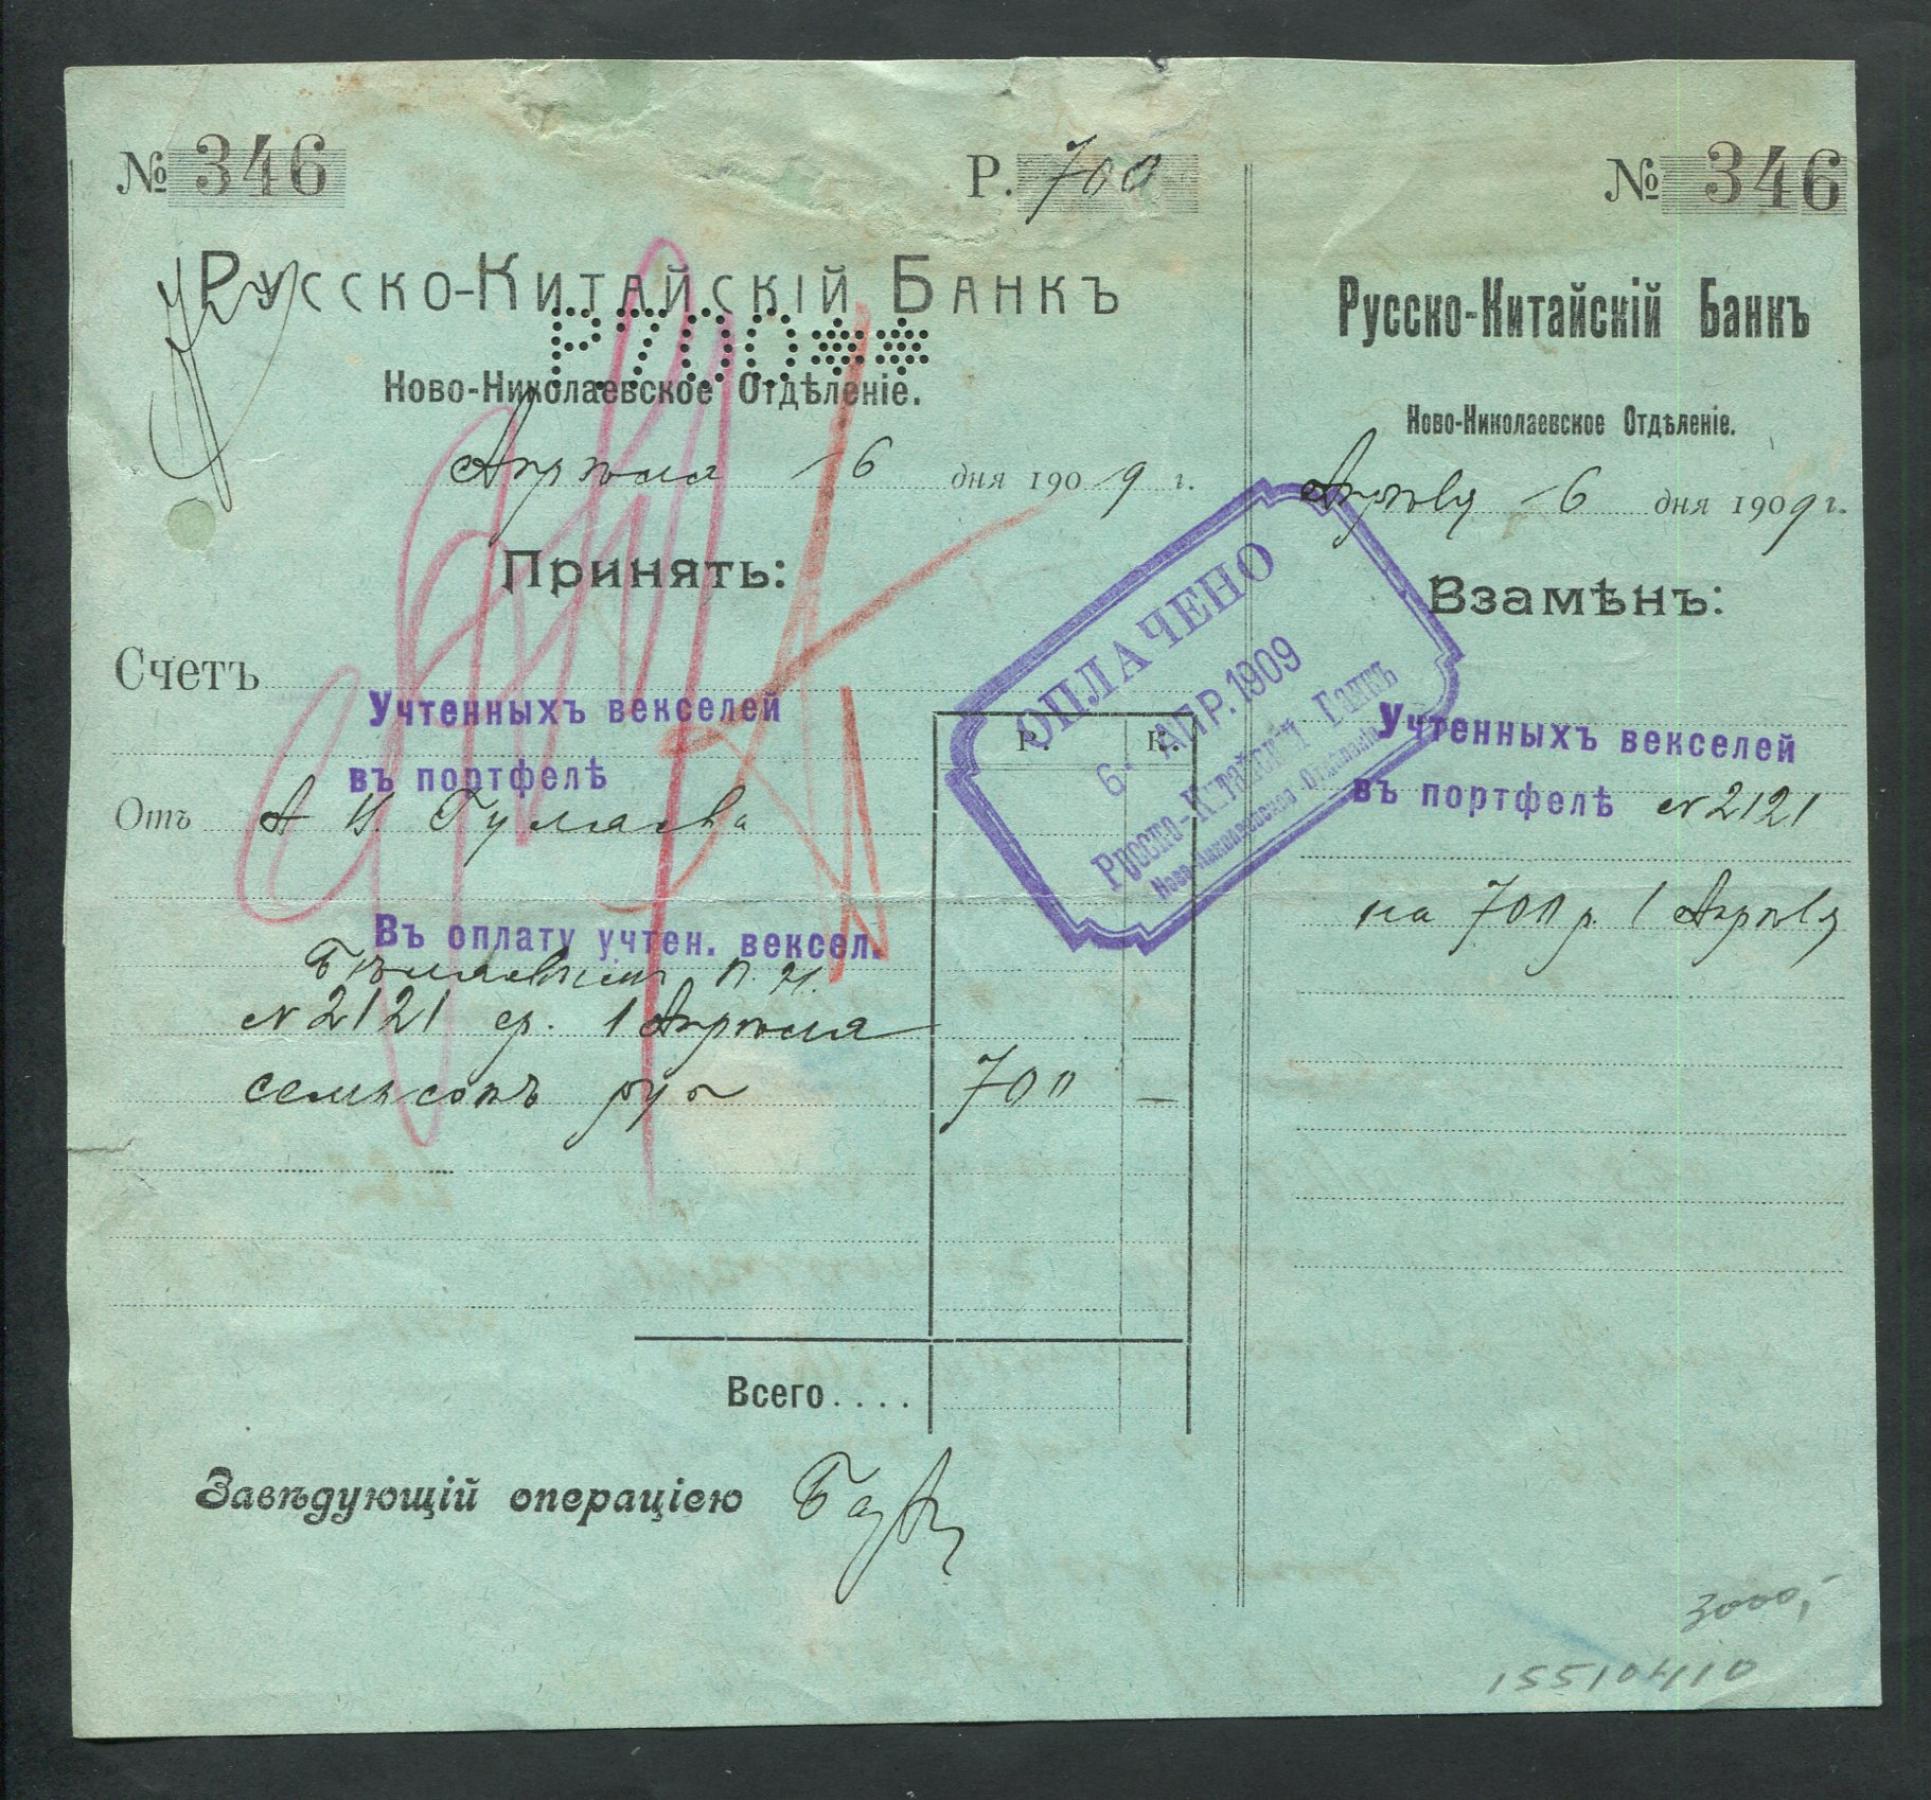 № 346
Р. 700
Русско-Китайскій Банкъ
Р.700**
Ново-Николаевское Отдѣленіе.
Апрѣля 6 дня 1909 г.
Принять:
Счетъ
Учтенныхъ векселей
въ портфелѣ
Отъ А И. Гуляева
Въ оплату учтен. вексел.
П. И.
№ 2121 ср. 1 Апрѣля
семьсотъ руб
700 —
Р. К.
Всего....
Завѣдующій операціею
ОПЛАЧЕНО
6 АПР. 1909
Русско-Китайскій Банкъ
Ново-Николаевское Отдѣленіе
№ 346
Русско-Китайскій Банкъ
Ново-Николаевское Отдѣленіе.
Апрѣля 6 дня 1909 г.
Взамѣнъ:
Учтенныхъ векселей
въ портфелѣ № 2121
на 700 р. 1 Апрѣля
3000,-
15510410